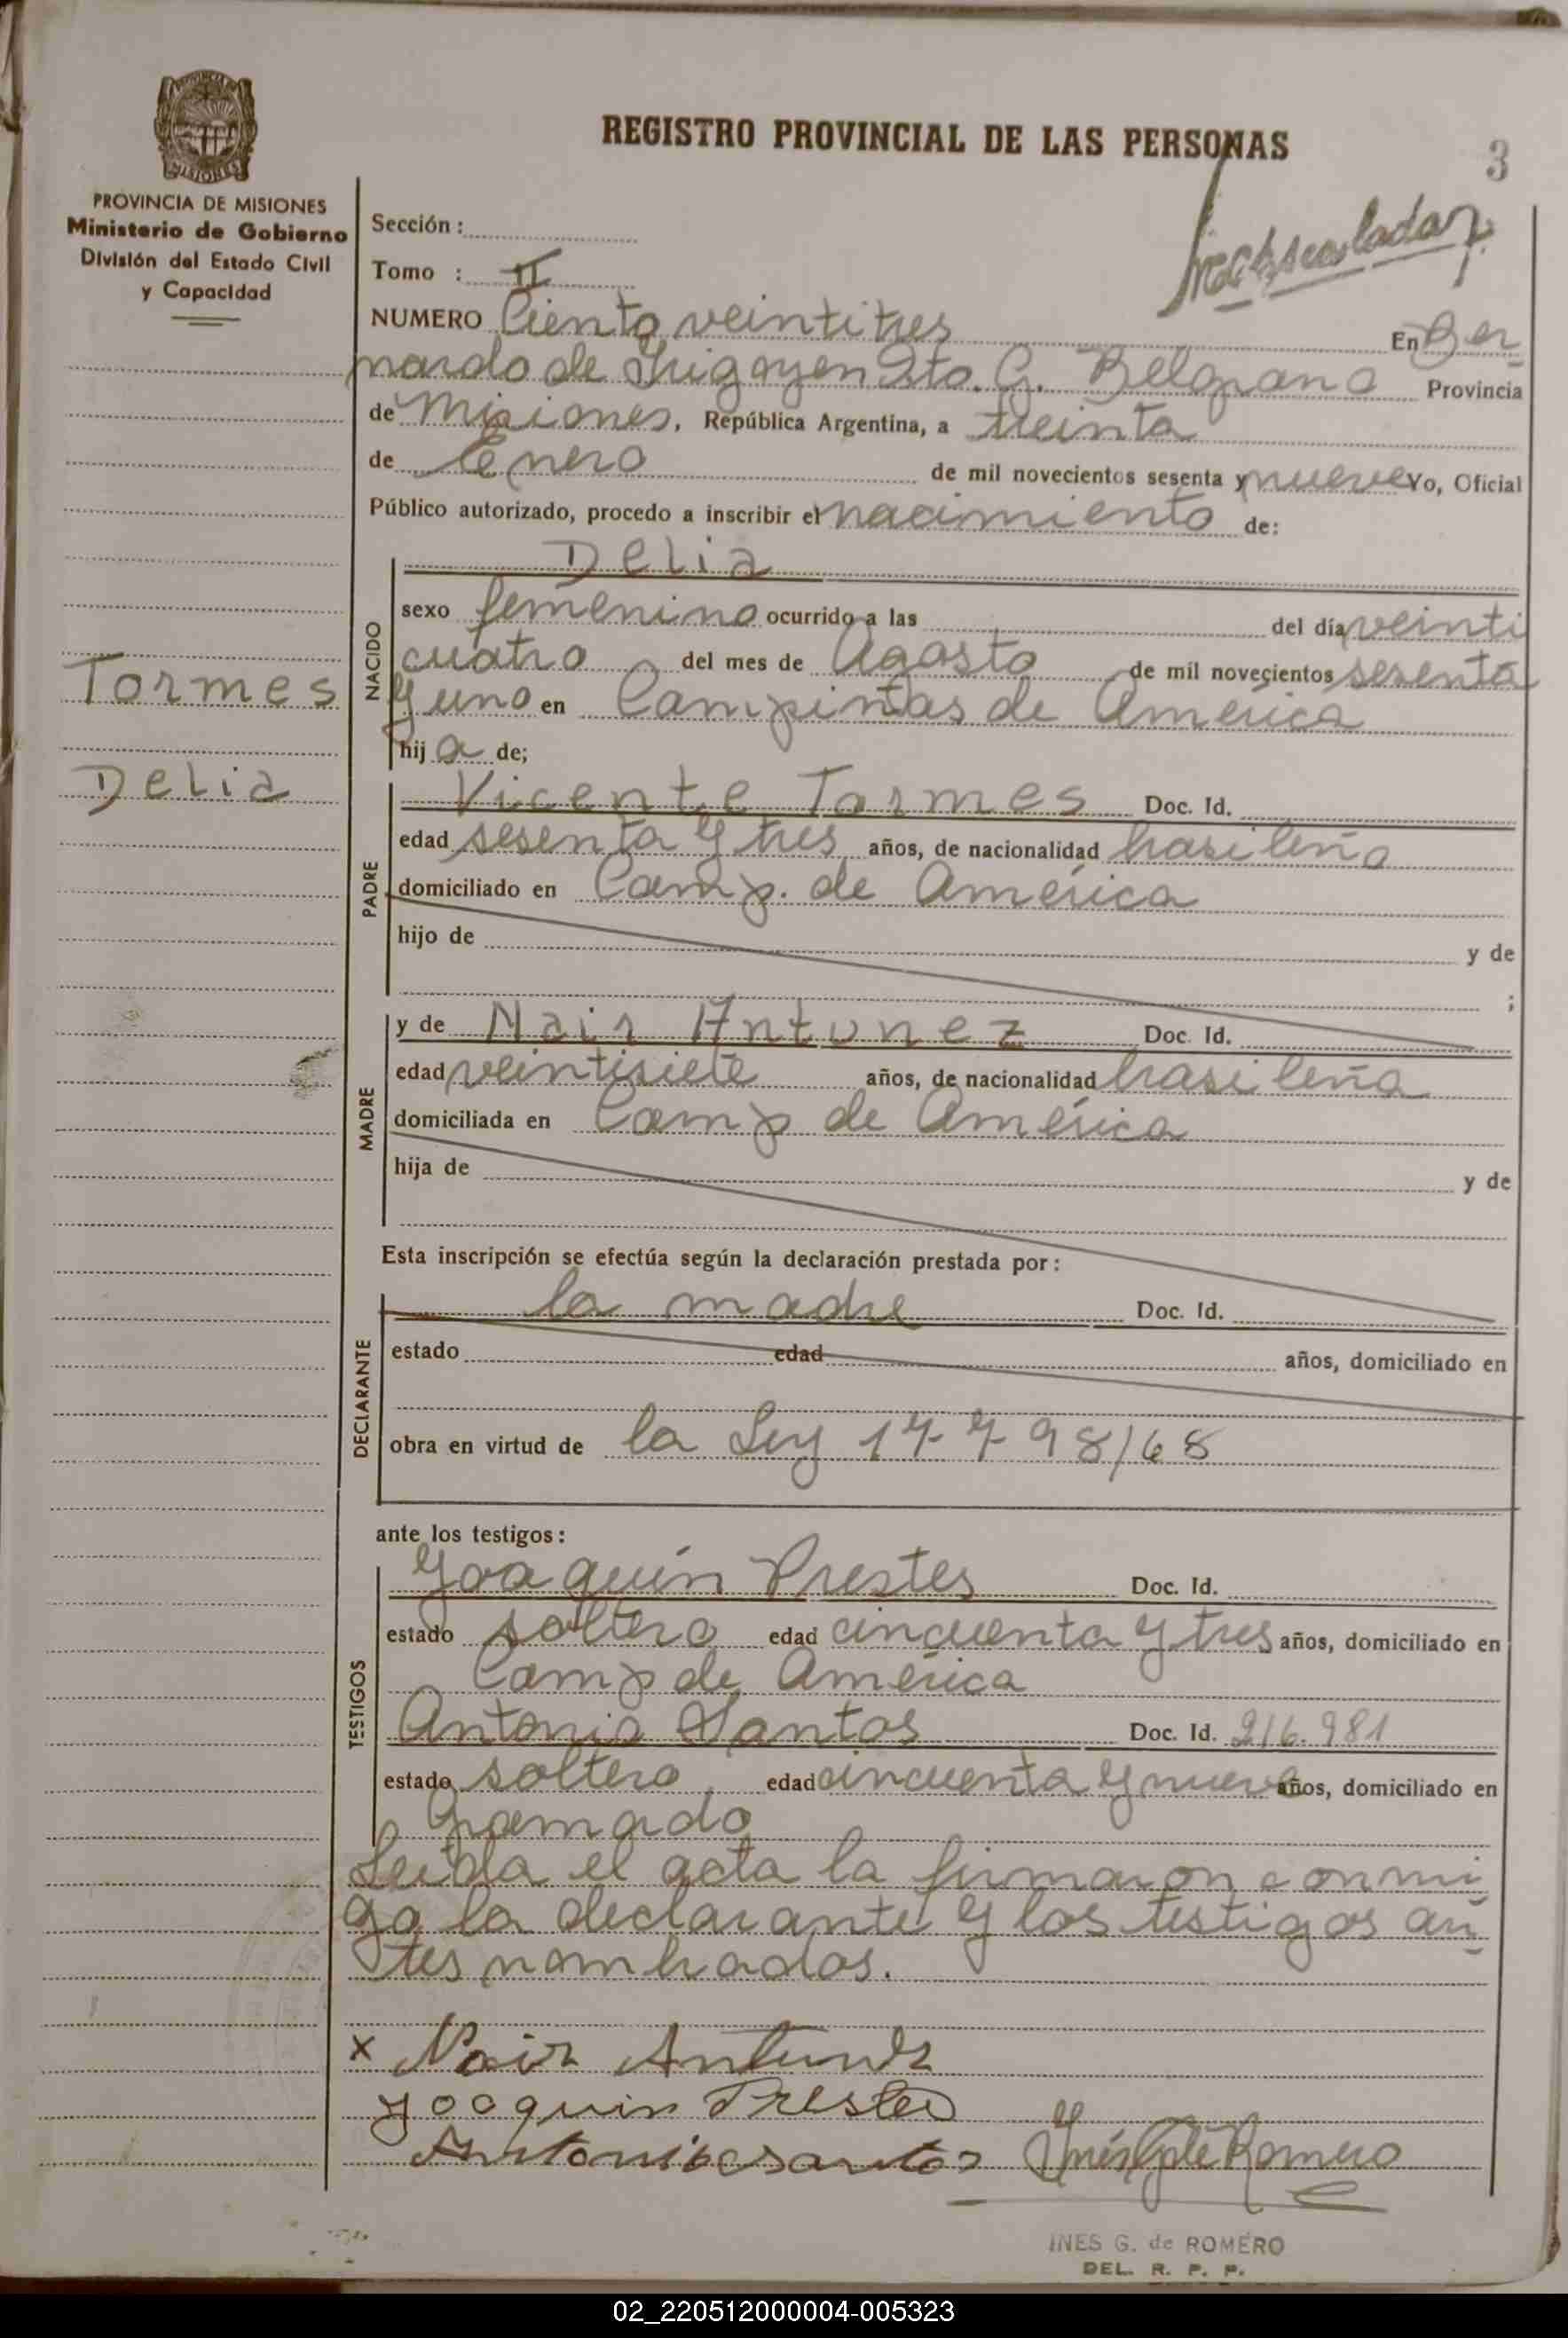 PROVINCIA DE MISIONES
Ministerio de Gobierno
División del Estado Civil
y Capacidad
Tormes
Delia
REGISTRO PROVINCIAL DE LAS PERSONAS
3
Sección:
Tomo : II
NUMERO Ciento veintitres En Ber-
nardo de Irigoyen Dto. G. Belgrano Provincia
de Misiones, República Argentina, a treinta
de Enero de mil novecientos sesenta y nueve Yo, Oficial
Público autorizado, procedo a inscribir el nacimiento de:
NACIDO
Delia
sexo femenino ocurrido a las del día veinti
cuatro del mes de Agosto de mil novecientos sesenta
y uno en Campinas de América
hija de;
PADRE
Vicente Tormes Doc. Id.
edad sesenta y tres años, de nacionalidad brasileño
domiciliado en Camp. de América
hijo de y de
;
MADRE
y de Nair Antunez Doc. Id.
edad veintisiete años, de nacionalidad brasileña
domiciliada en Camp de América
hija de y de
Esta inscripción se efectúa según la declaración prestada por:
DECLARANTE
la madre Doc. Id.
estado edad años, domiciliado en
obra en virtud de la Ley 17798/68
ante los testigos:
TESTIGOS
Joaquín Prestes Doc. Id.
estado soltero edad cincuenta y tres años, domiciliado en
Camp de América
Antonio Santos Doc. Id. 216.981
estado soltero edad cincuenta y nueve años, domiciliado en
Gramado
Leida el acta la firmaron conmi-
go la declarante y los testigos an-
tes nombrados.
x Nair Antunez
Joaquin Prestes
Antonio santos Inés G de Romero
INES G. de ROMERO
DEL. R. P. P.
02_220512000004-005323